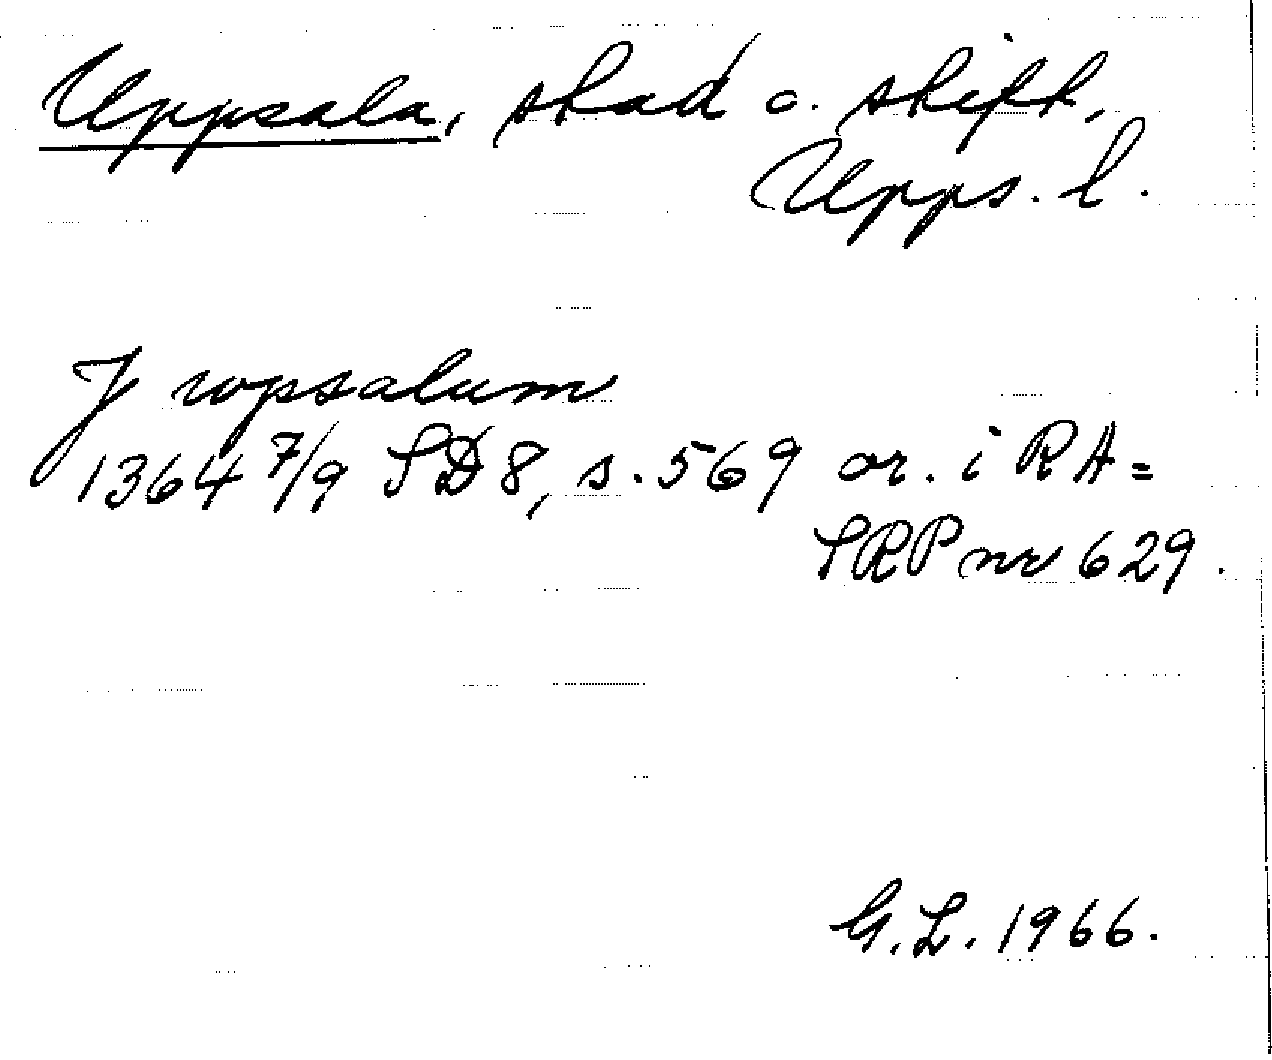 Uppsala, stad o. stift,
Upps. l.
J vpsalum
1364 7/9 SD 8, s. 569 or. i RA =
SRP nr 629.
G.L. 1966.